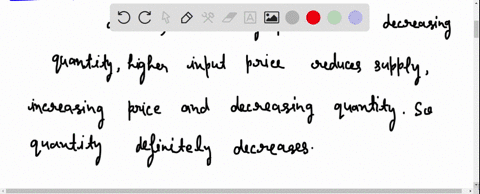 decreasing
quantity, higher input price reduces supply,
increasing price and decreasing quantity. So
quantity definitely decreases.